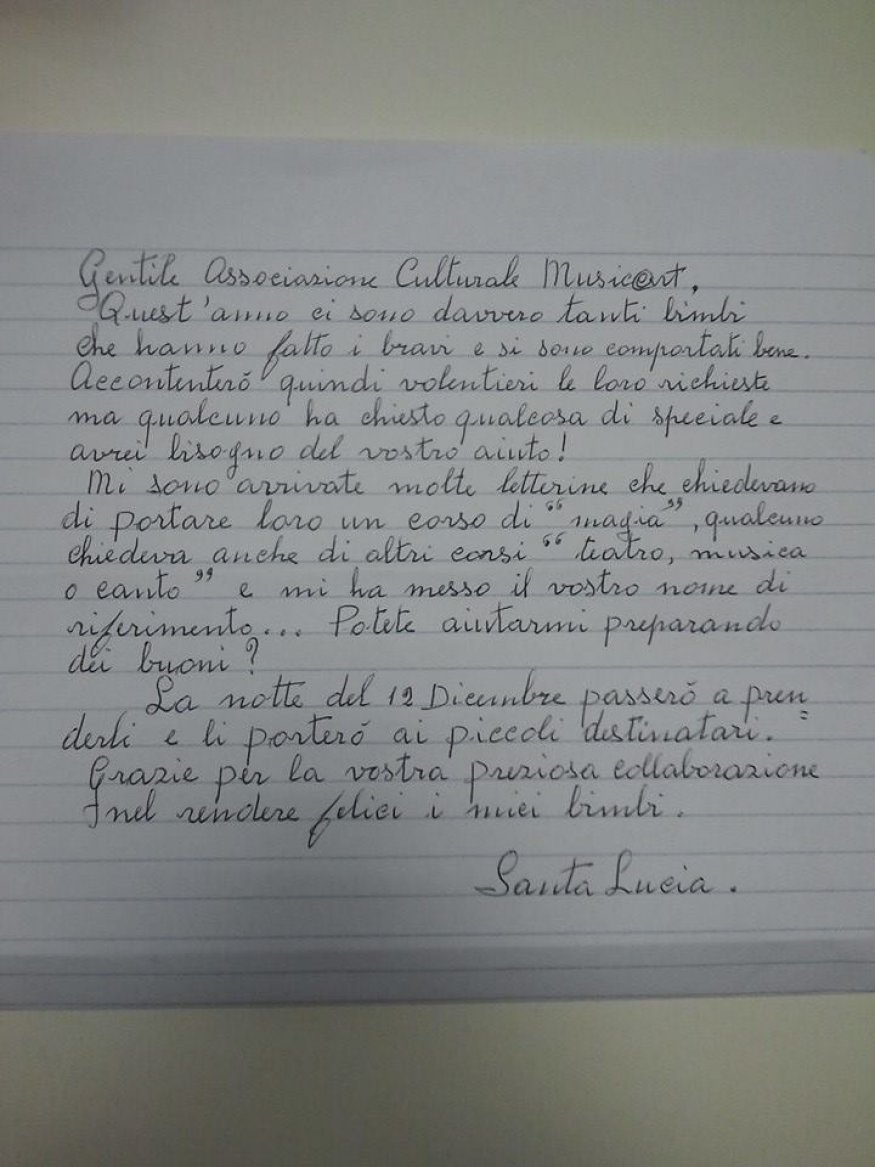 Gentile Associazione Culturale Music@rt,
Quest'anno ci sono davvero tanti bimbi
che hanno fatto i bravi e si sono comportati bene.
Accontenterò quindi volentieri le loro richieste
ma qualcuno ha chiesto qualcosa di speciale e
avrei bisogno del vostro aiuto!
Mi sono arrivate molte letterine che chiedevano
di portare loro un corso di “magia”, qualcuno
chiedeva anche di altri corsi “teatro, musica
o canto” e mi ha messo il vostro nome di
riferimento... Potete aiutarmi preparando
dei buoni?
La notte del 12 Dicembre passerò a pren=
derli e li porterò ai piccoli destinatari.
Grazie per la vostra preziosa collaborazione
nel rendere felici i miei bimbi.
Santa Lucia.